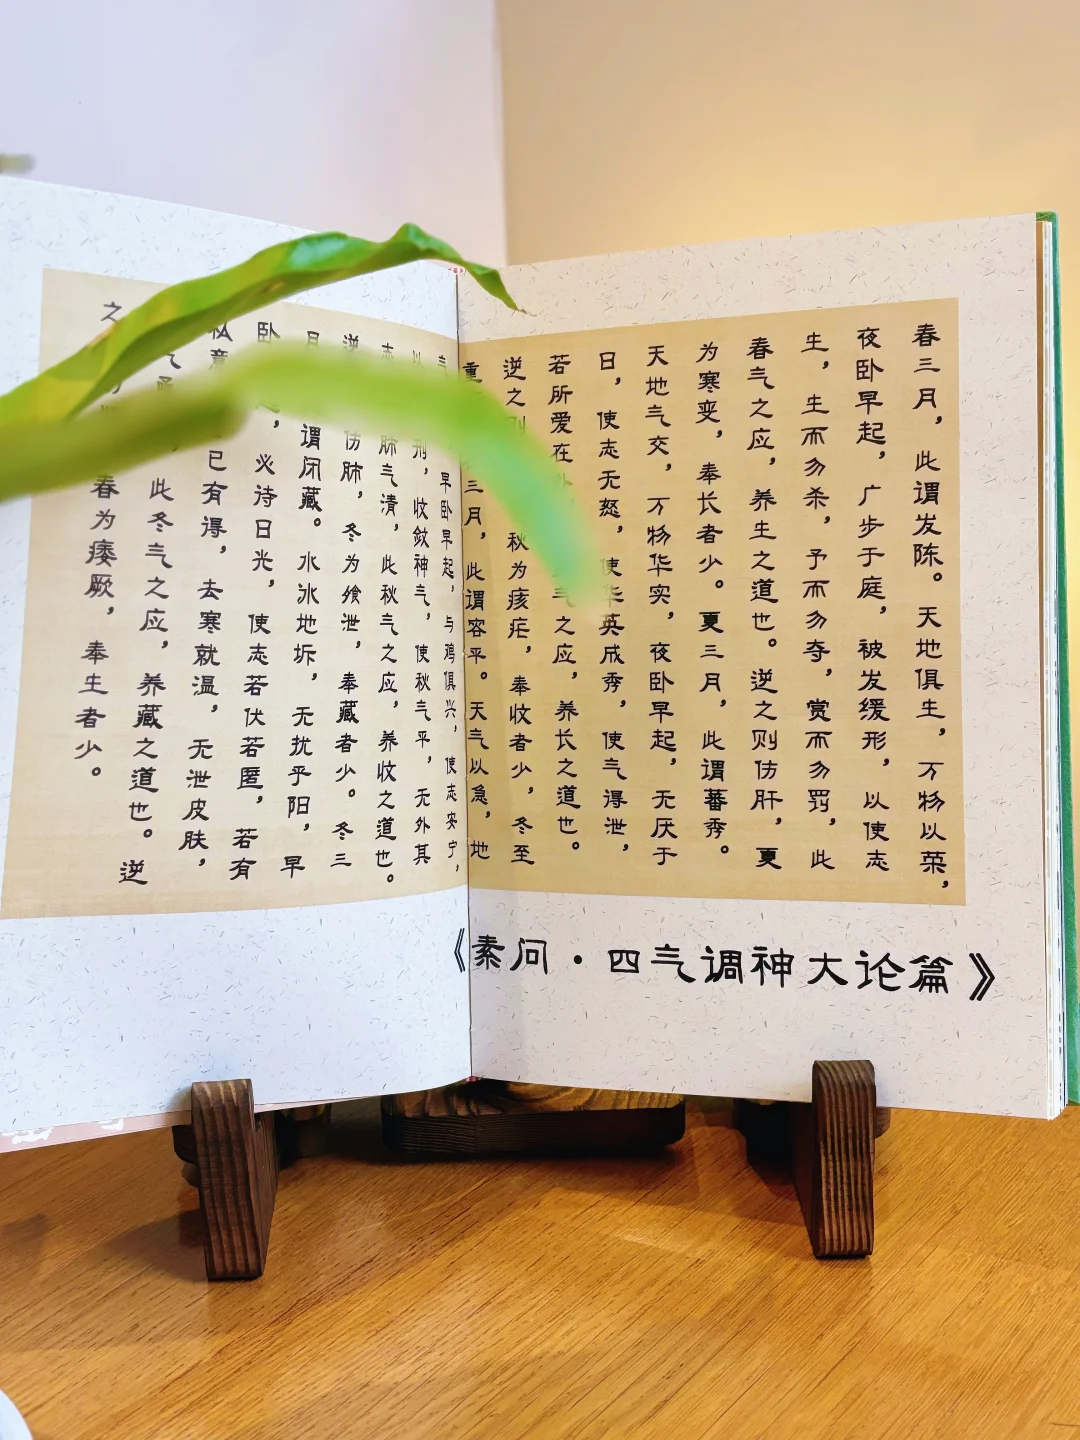 春三月，此谓发陈。天地俱生，万物以荣，
夜卧早起，广步于庭，被发缓形，以使志
生，生而勿杀，予而勿夺，赏而勿罚，此
春气之应，养生之道也。逆之则伤肝，夏
为寒变，奉长者少。夏三月，此谓蕃秀。
天地气交，万物华实，夜卧早起，无厌于
日，使志无怒，使华英成秀，使气得泄，
若所爱在外，气之应，养长之道也。
逆之则秋为痎疟，奉收者少，冬至
重三月，此谓容平。天气以急，地
早卧早起，与鸡俱兴，使志安宁，
以刑，收敛神气，使秋气平，无外其
志肺气清，此秋气之应，养收之道也。
逆伤肺，冬为飧泄，奉藏者少。冬三
月谓闭藏。水冰地坼，无扰乎阳，早
卧，必待日光，使志若伏若匿，若有
私意已有得，去寒就温，无泄皮肤，
此冬气之应，养藏之道也。逆
之春为痿厥，奉生者少。
《素问·四气调神大论篇》